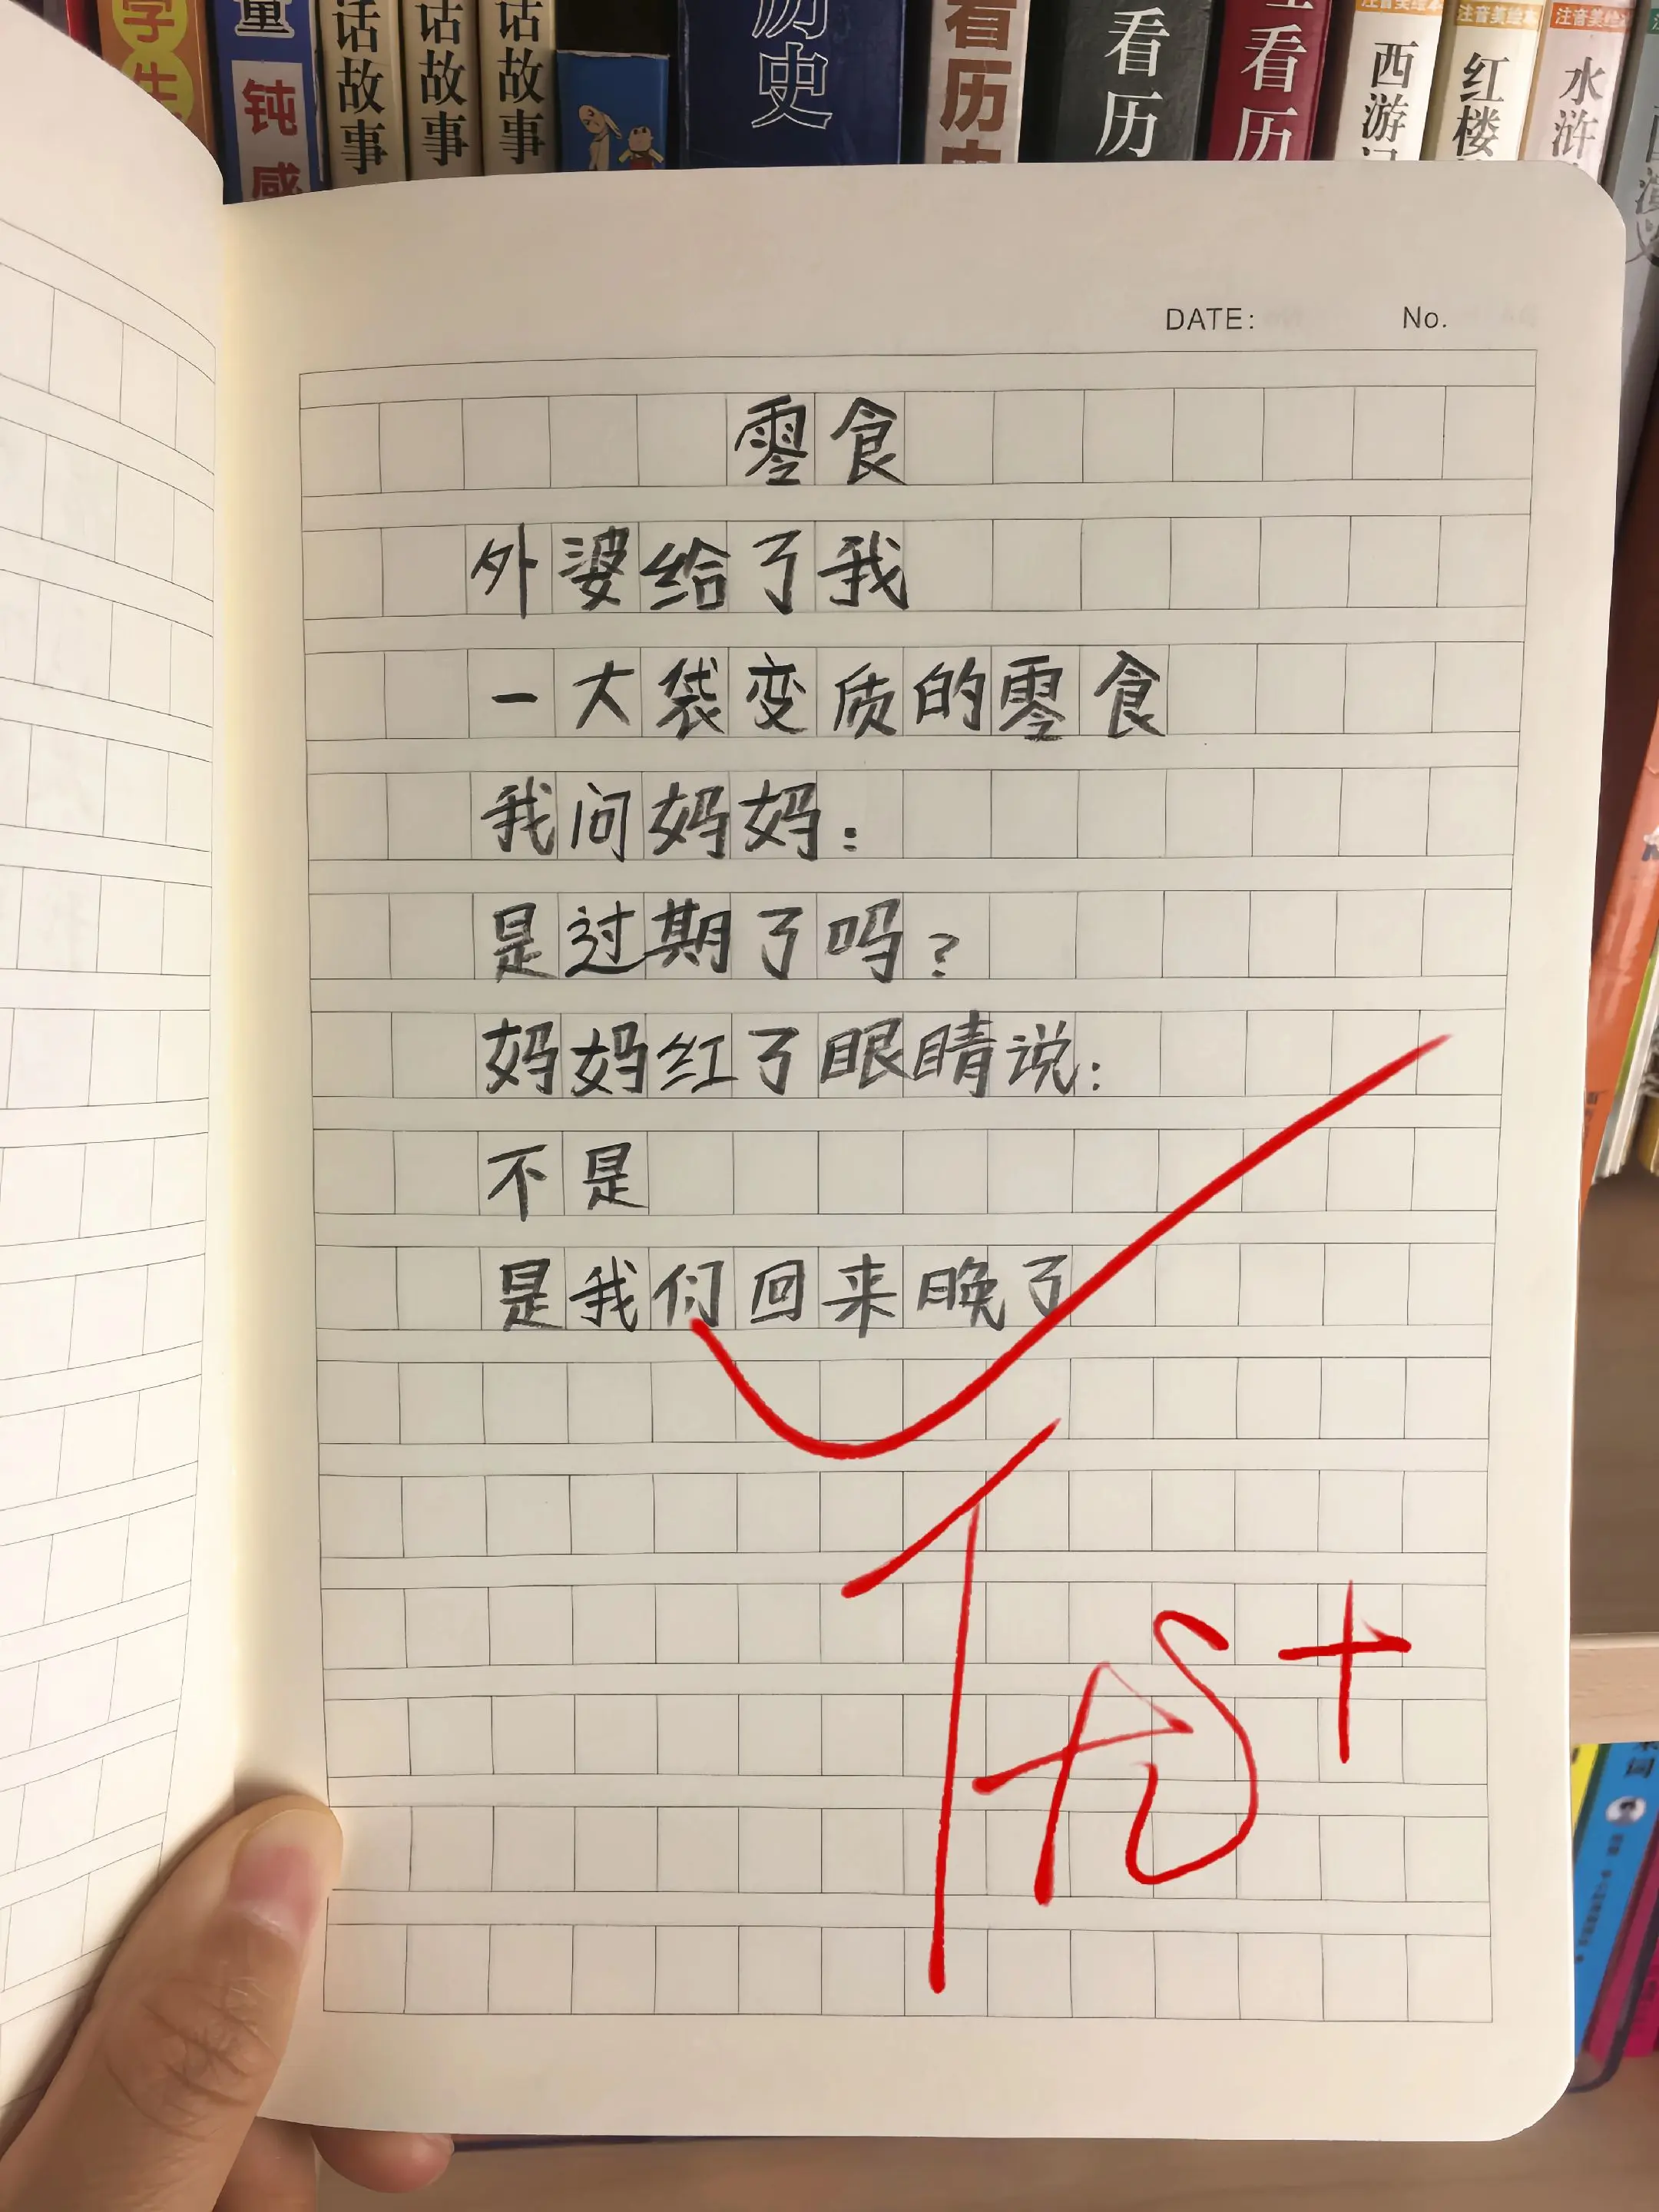 学生
钝感
话故事
话故事
话故事
历史
看历史
看历
看历
注音美绘本
西游记
注音美绘本
红楼
注音美绘
水浒
DATE: No.
零食
外婆给了我
一大袋变质的零食
我问妈妈：
是过期了吗？
妈妈红了眼睛说：
不是
是我们回来晚了
优+